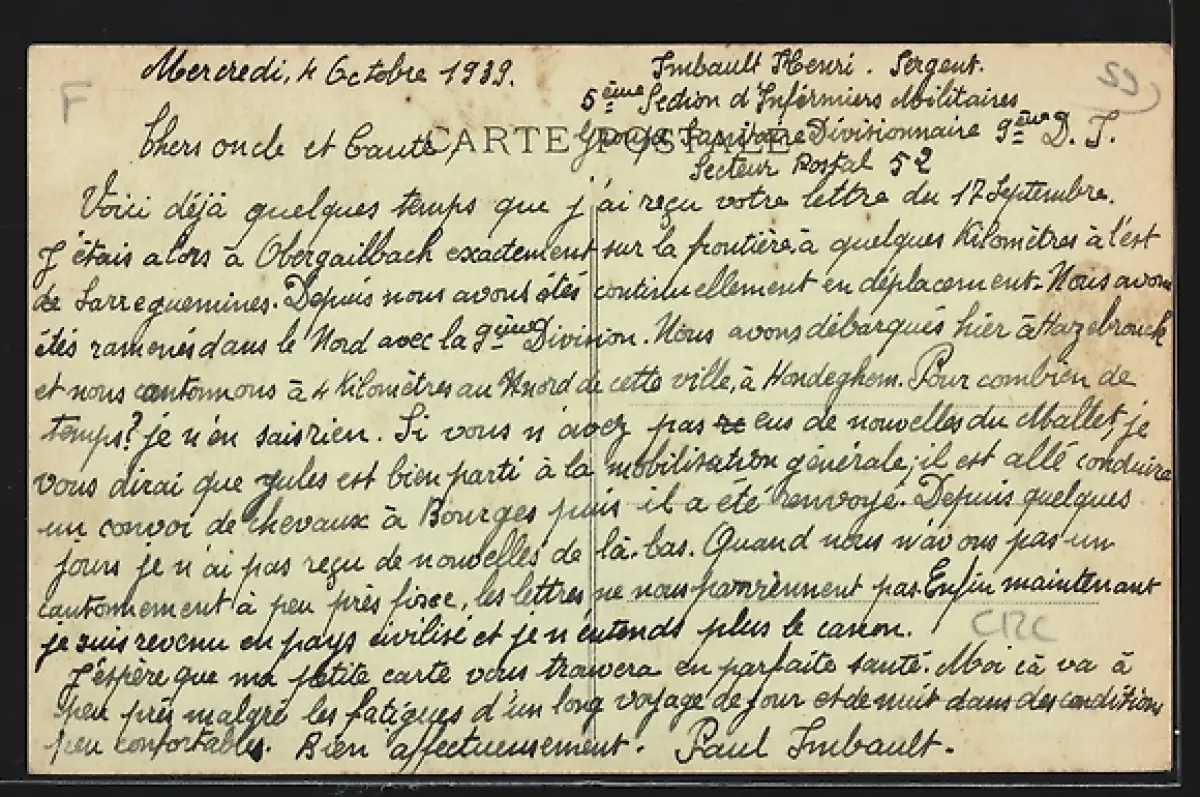 F
Mercredi, 4 Octobre 1939.
Imbault Henri. Sergent.
5ème Section d'Infirmiers Militaires
Groupe Sanitaire Divisionnaire 9ème D. I.
Secteur Postal 52
CARTE POSTALE
Chers oncle et tante,
Voici déjà quelques temps que j'ai reçu votre lettre du 17 Septembre.
J'étais alors à Obergailbach exactement sur la frontière à quelques Kilomètres à l'est
de Sarreguemines. Depuis nous avons étés continuellement en déplacement. Nous avons
étés ramenés dans le Nord avec la 9ème Division. Nous avons débarqués hier à Hazebrouck
et nous cantonnons à 4 Kilomètres au nord de cette ville, à Hondeghem. Pour combien de
temps? je n'en sais rien. Si vous n'avez pas eus de nouvelles du Mallet, je
vous dirai que Jules est bien parti à la mobilisation générale; il est allé conduire
un convoi de chevaux à Bourges puis il a été renvoyé. Depuis quelques
jours je n'ai pas reçu de nouvelles de là-bas. Quand nous n'avons pas un
cantonnement à peu près fixe, les lettres ne nous parviennent pas. Enfin maintenant
je suis revenu en pays civilisé et je n'entends plus le canon.
CRC
J'éspère que ma petite carte vous trouvera en parfaite santé. Moi cà va à
peu près malgré les fatigues d'un long voyage de jour et de nuit dans des conditions
peu confortables. Bien affectueusement. Paul Imbault.